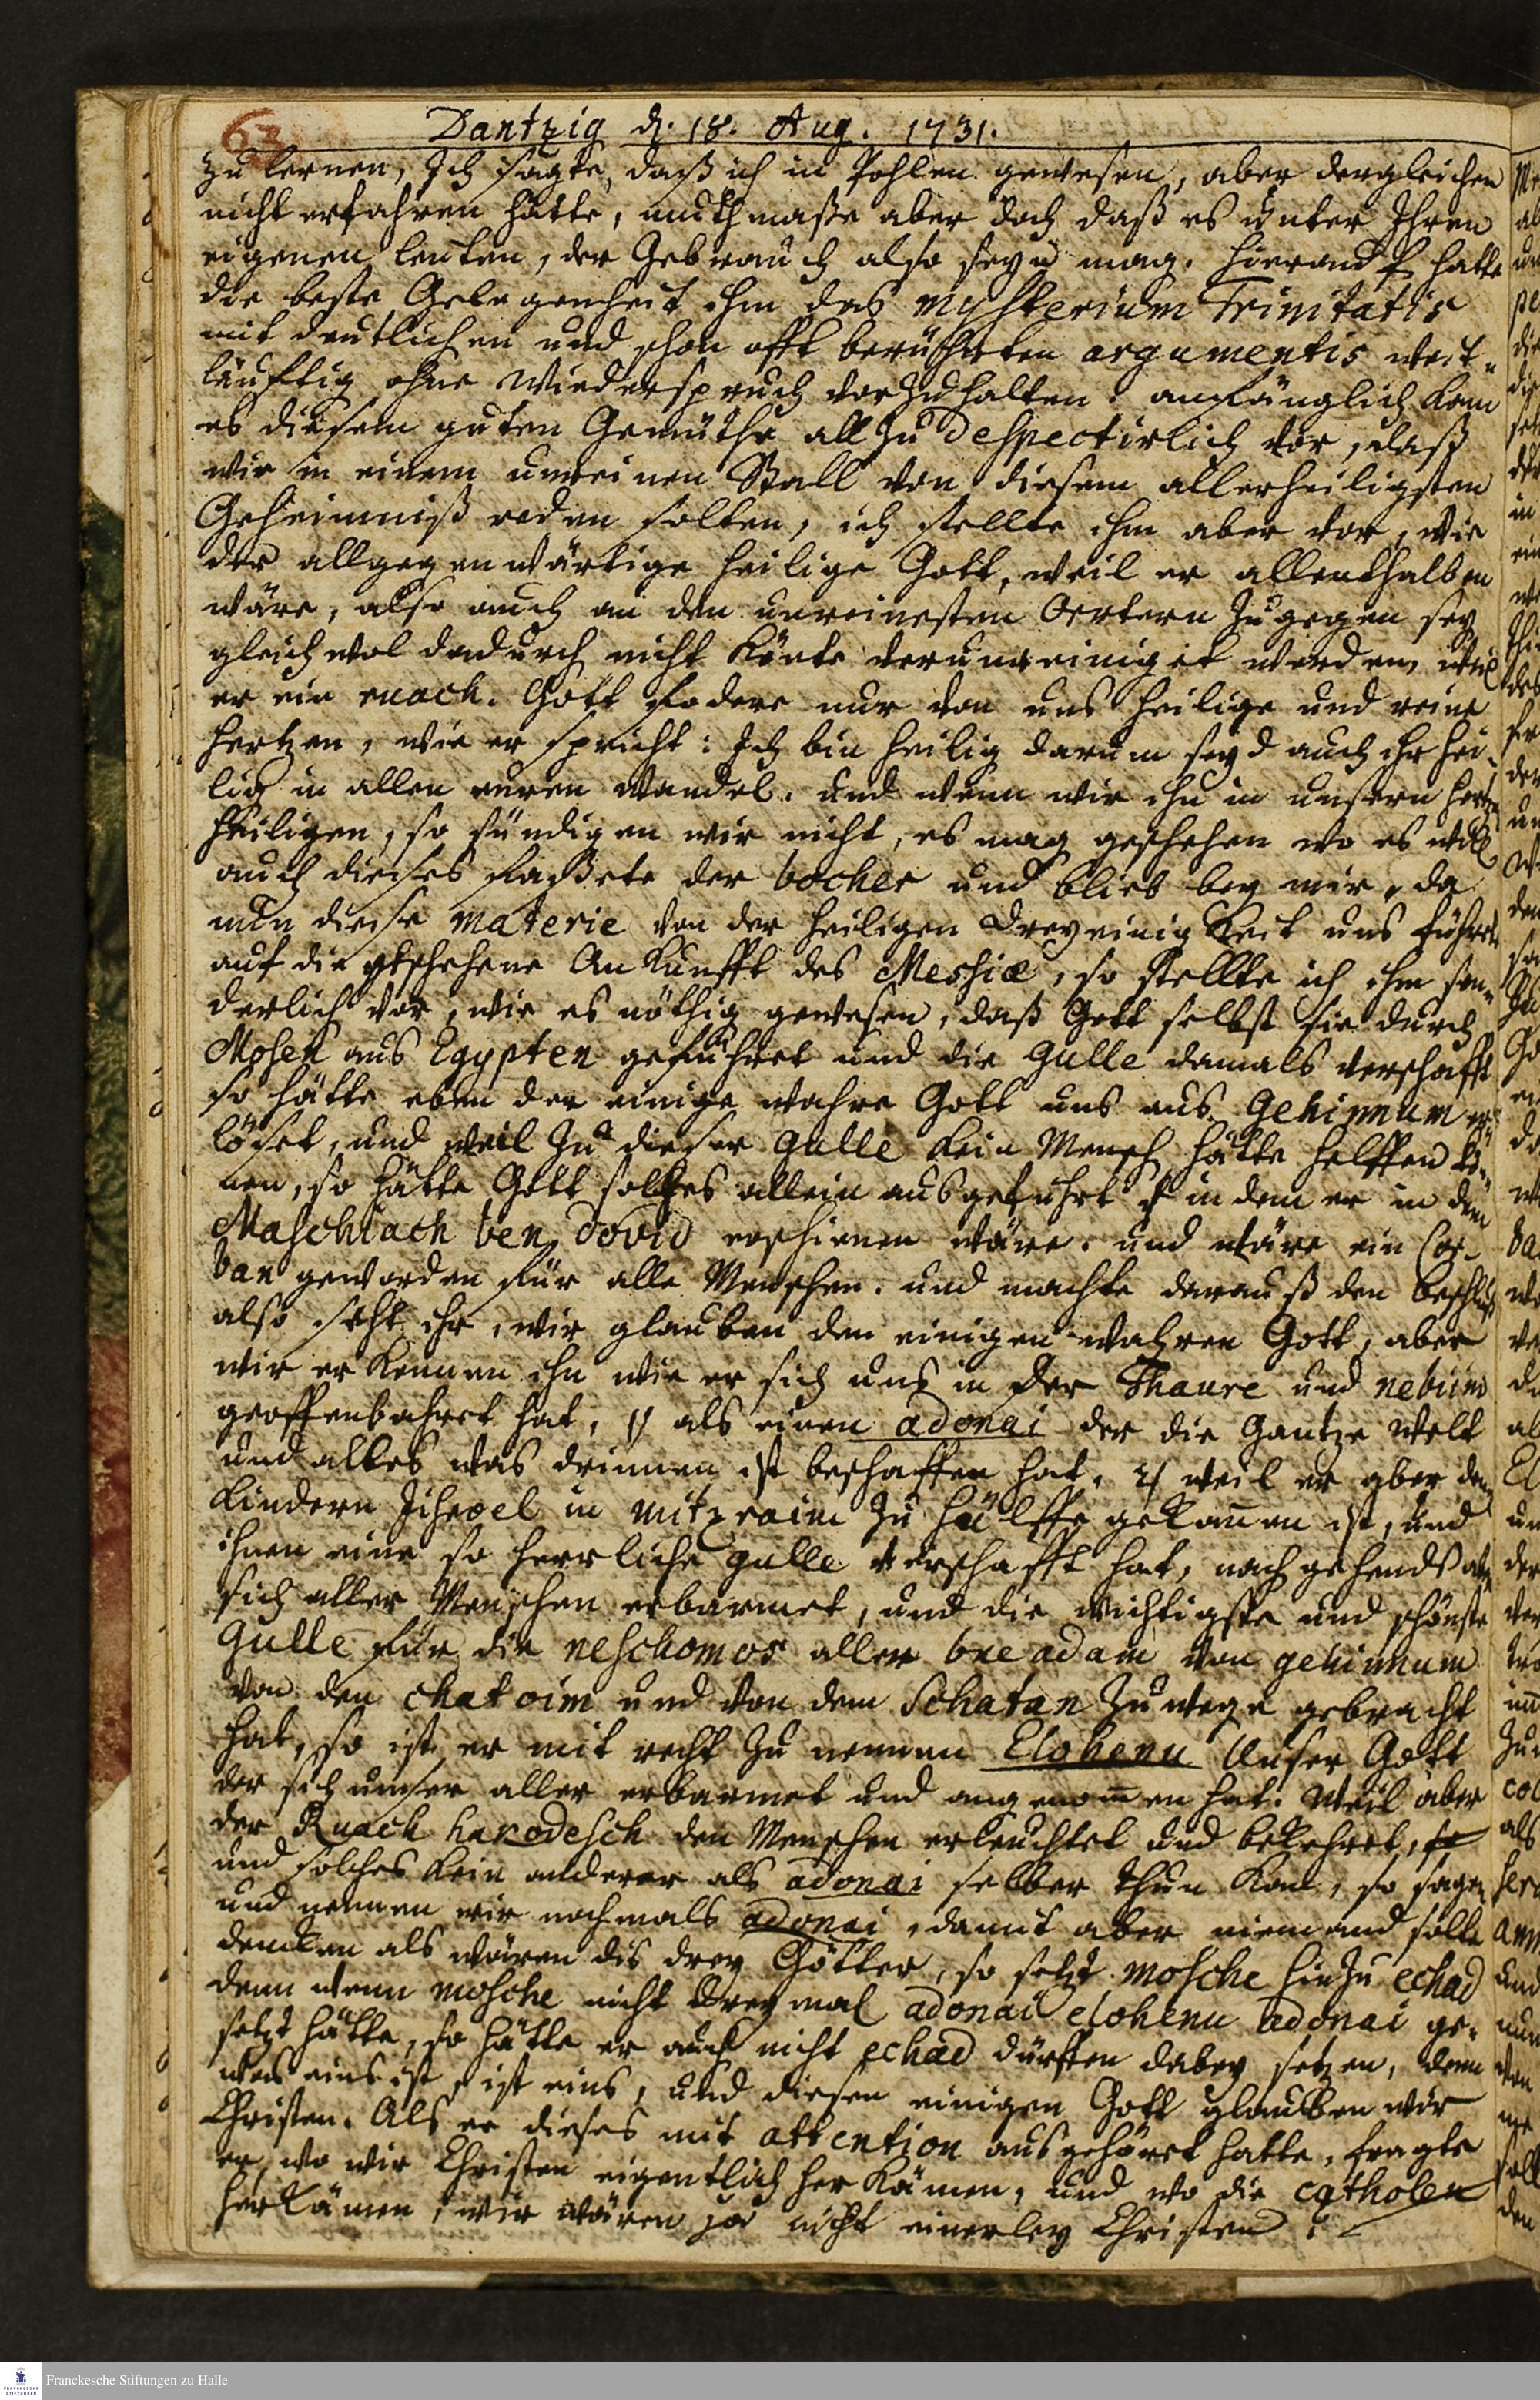 63
Dantzig d. 18. Aug. 1731.
zu lernen, Ich sagte, daß ich in Pohlen gewesen, aber dergleichen
nicht erfahren hätte, muthmaße aber doch daß es unter Ihren
eigenen leuten, der Gebrauch also seyn mag. hierauf hatte
die beste Gelegenheit ihm das mysterium Trinitatis
mit deutlichen und schon offt berührten argumentis weit-
läufftig ohne Wiederspruch vorzuhalten. anfänglich kam
es diesem guten Gemüthe all zu despectirlich vor, daß
wir in einem unreinen Stall von diesem allerheiligsten
Geheimniß reden solten, ich stellte ihm aber vor, wie
der allgegenwärtige heilige Gott, weil er allenthalben
wäre, also auch an den unreinesten Oertern zugegen sey
gleichwol dadurch nicht könte verunreiniget werden, weil
er ein ruach. Gott fodere nur von uns heilige und reine
hertzen, wie er spricht: Ich bin heilig darum seyd auch ihr hei-
lig in allen euren Wandel. und wenn wir ihn in unsern hertzen
heiligen, so sündigen wir nicht, es mag geschehen wo es will
auch dieses faßete der bocher und blieb bey mir, da
nun diese materie von der heiligen Dreyeinigkeit uns führete
auf die geschehene Ankunfft des Messiæ, so stellte ich ihm son-
derlich vor, wie es nöthig gewesen, daß Gott selbst sie durch
Mosen aus Egypten geführet und die Gulle damals verschafft
so hätte eben der einige wahre Gott uns aus Gehinnum er-
löset, und weil zu dieser Gulle kein Mensch hätte helffen kö-
nen, so hätte Gott solches allein ausgeführt in dem er in dem
Maschiach ben Dovid erschienen wäre. und wäre ein Cor-
ban geworden für alle Menschen. und machte darauß den beschluß
also seht ihr, wir glauben den einigen wahren Gott, aber
wir erkennen ihn wie er sich uns in der Thaure und nebiim
geoffenbahret hat, 1/ als einen adonai der die Gantze Welt
und alles was drinnen ist beschaffen hat. 2/ weil er aber den
Kindern Jisroel in mitzraim zu hülffe gekom̅en ist, und
ihnen eine so herrliche gulle verschafft hat, nachgehends aber
sich aller Menschen erbarmet, und die wichtigste und schönste
Gulle für die neschomos aller bne adam von gehinnum
von den chatoim und von dem Schatan zuwege gebracht
hat, so ist er mit recht zu nennen Elohenu Unser Gott
der sich unser aller erbarmet und angenom̅en hat. Weil aber
der Ruach hakodesch den Menschen erleuchtet und bekehret,
und solches kein anderer als adonai selber thun kan, so sagen
und nennen wir nochmals adonai, damit aber niemand solte
dencken als wären dis drey Götter, so setzt mosche hinzu echad
denn wenn mosche nicht drey mal adonai elohenu adonai ge-
setzt hätte, so hätte er auch nicht echad dürffen dabey setzen, denn
was eins ist, ist eins, und diesen einigen Gott glauben wir
Christen. Als er dieses mit attention ausgehöret hatte, fragte
er, wo wir Christen eigentlich her kämen, und wo die catholen
herkämen, wir wären ja nicht einerley Christen?
Franckesche Stiftungen zu Halle